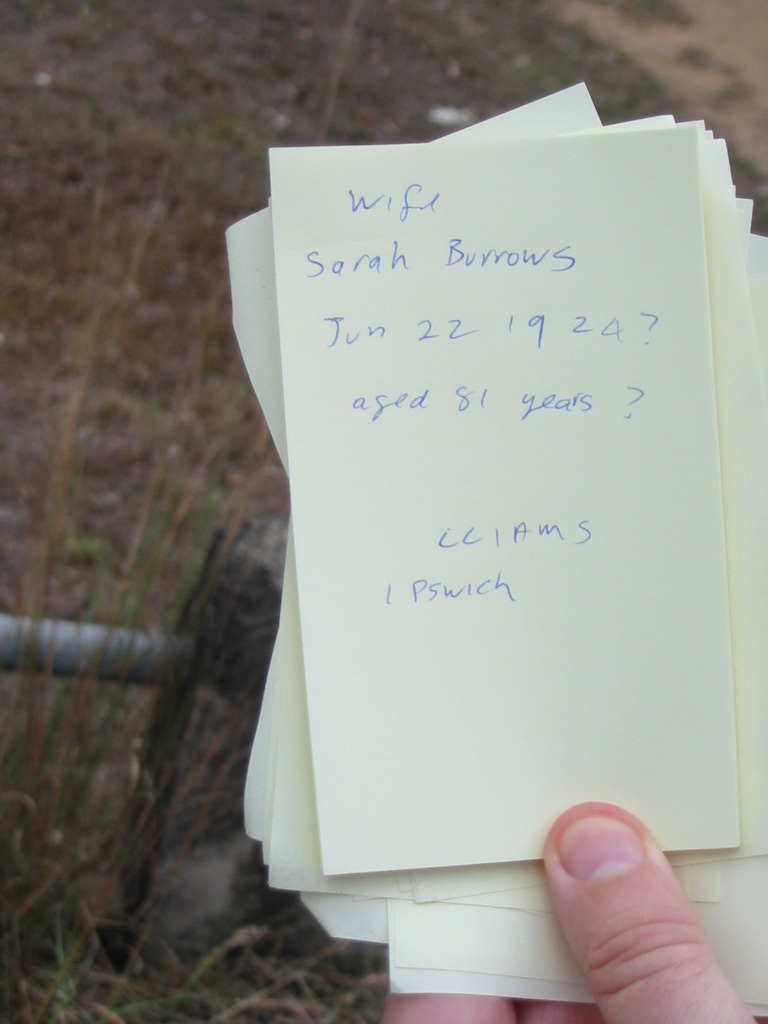 Wife
Sarah Burrows
Jun 22 1924?
aged 81 years ?
LLIAMS
Ipswich